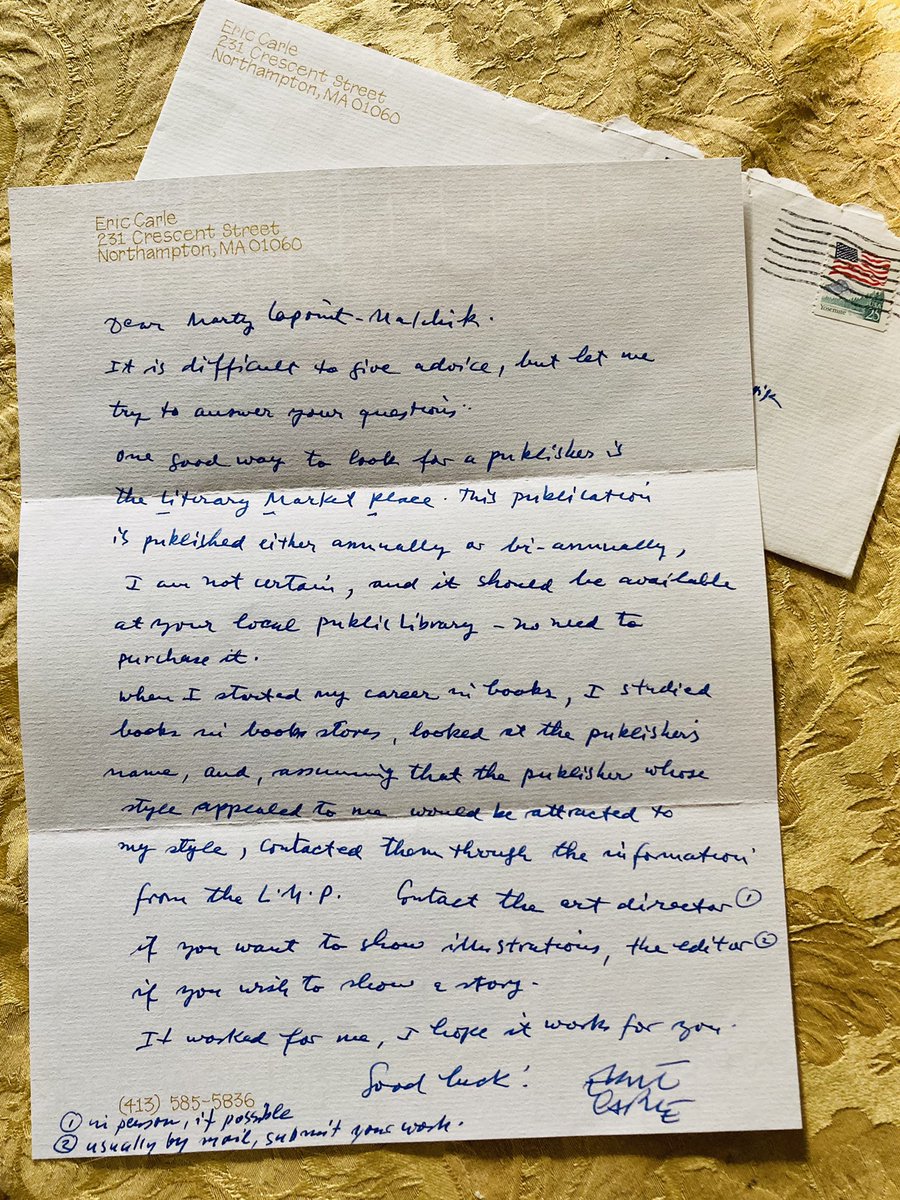 Eric Carle
231 Crescent Street
Northampton, MA 01060
Eric Carle
231 Crescent Street
Northampton, MA 01060
USA
25
Yosemite
Dear Marty Lapoint-Malchik.
It is difficult to give advice, but let me
try to answer your questions.
One good way to look for a publisher is
the Literary Market Place. This publication
is published either annually or bi-annually,
I am not certain, and it should be available
at your local public library – no need to
purchase it.
When I started my career in books, I studied
books in book stores, looked at the publisher's
name, and, assuming that the publisher whose
style appealed to me would be attracted to
my style, contacted them through the information
from the L.M.P. Contact the art director ①
if you want to show illustrations, the editor ②
if you wish to show a story.
It worked for me, I hope it works for you.
Good luck!
Eric
Carle
(413) 585-5836
① in person, if possible
② usually by mail, submit your work.